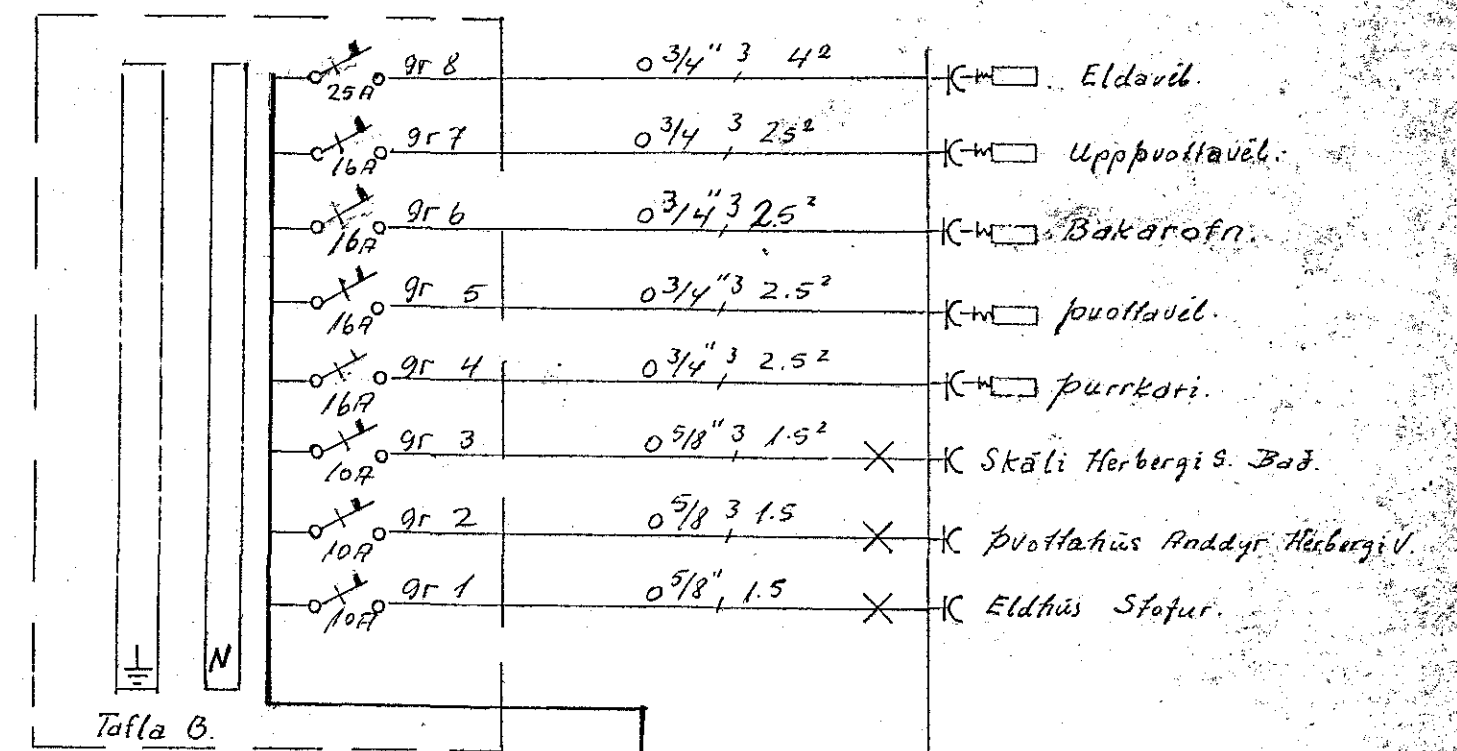 gr 8 o 3/4" 3 4² Eldavél.
25A
gr 7 o 3/4 3 25² Uppþvottavél.
16A
gr 6 o 3/4" 3 2.5² Bakarofn.
16A
gr 5 o 3/4" 3 2.5² þvottavél.
16A
gr 4 o 3/4" 3 2.5² þurrkari.
16A
gr 3 o 5/8" 3 1.5² Skáli Herbergi S. Bað.
10A
gr 2 o 5/8 3 1.5 þvottahús Anddyr Herbergi V.
10A
gr 1 o 5/8" 1.5 Eldhús Stofur.
10A
N
Tafla B.